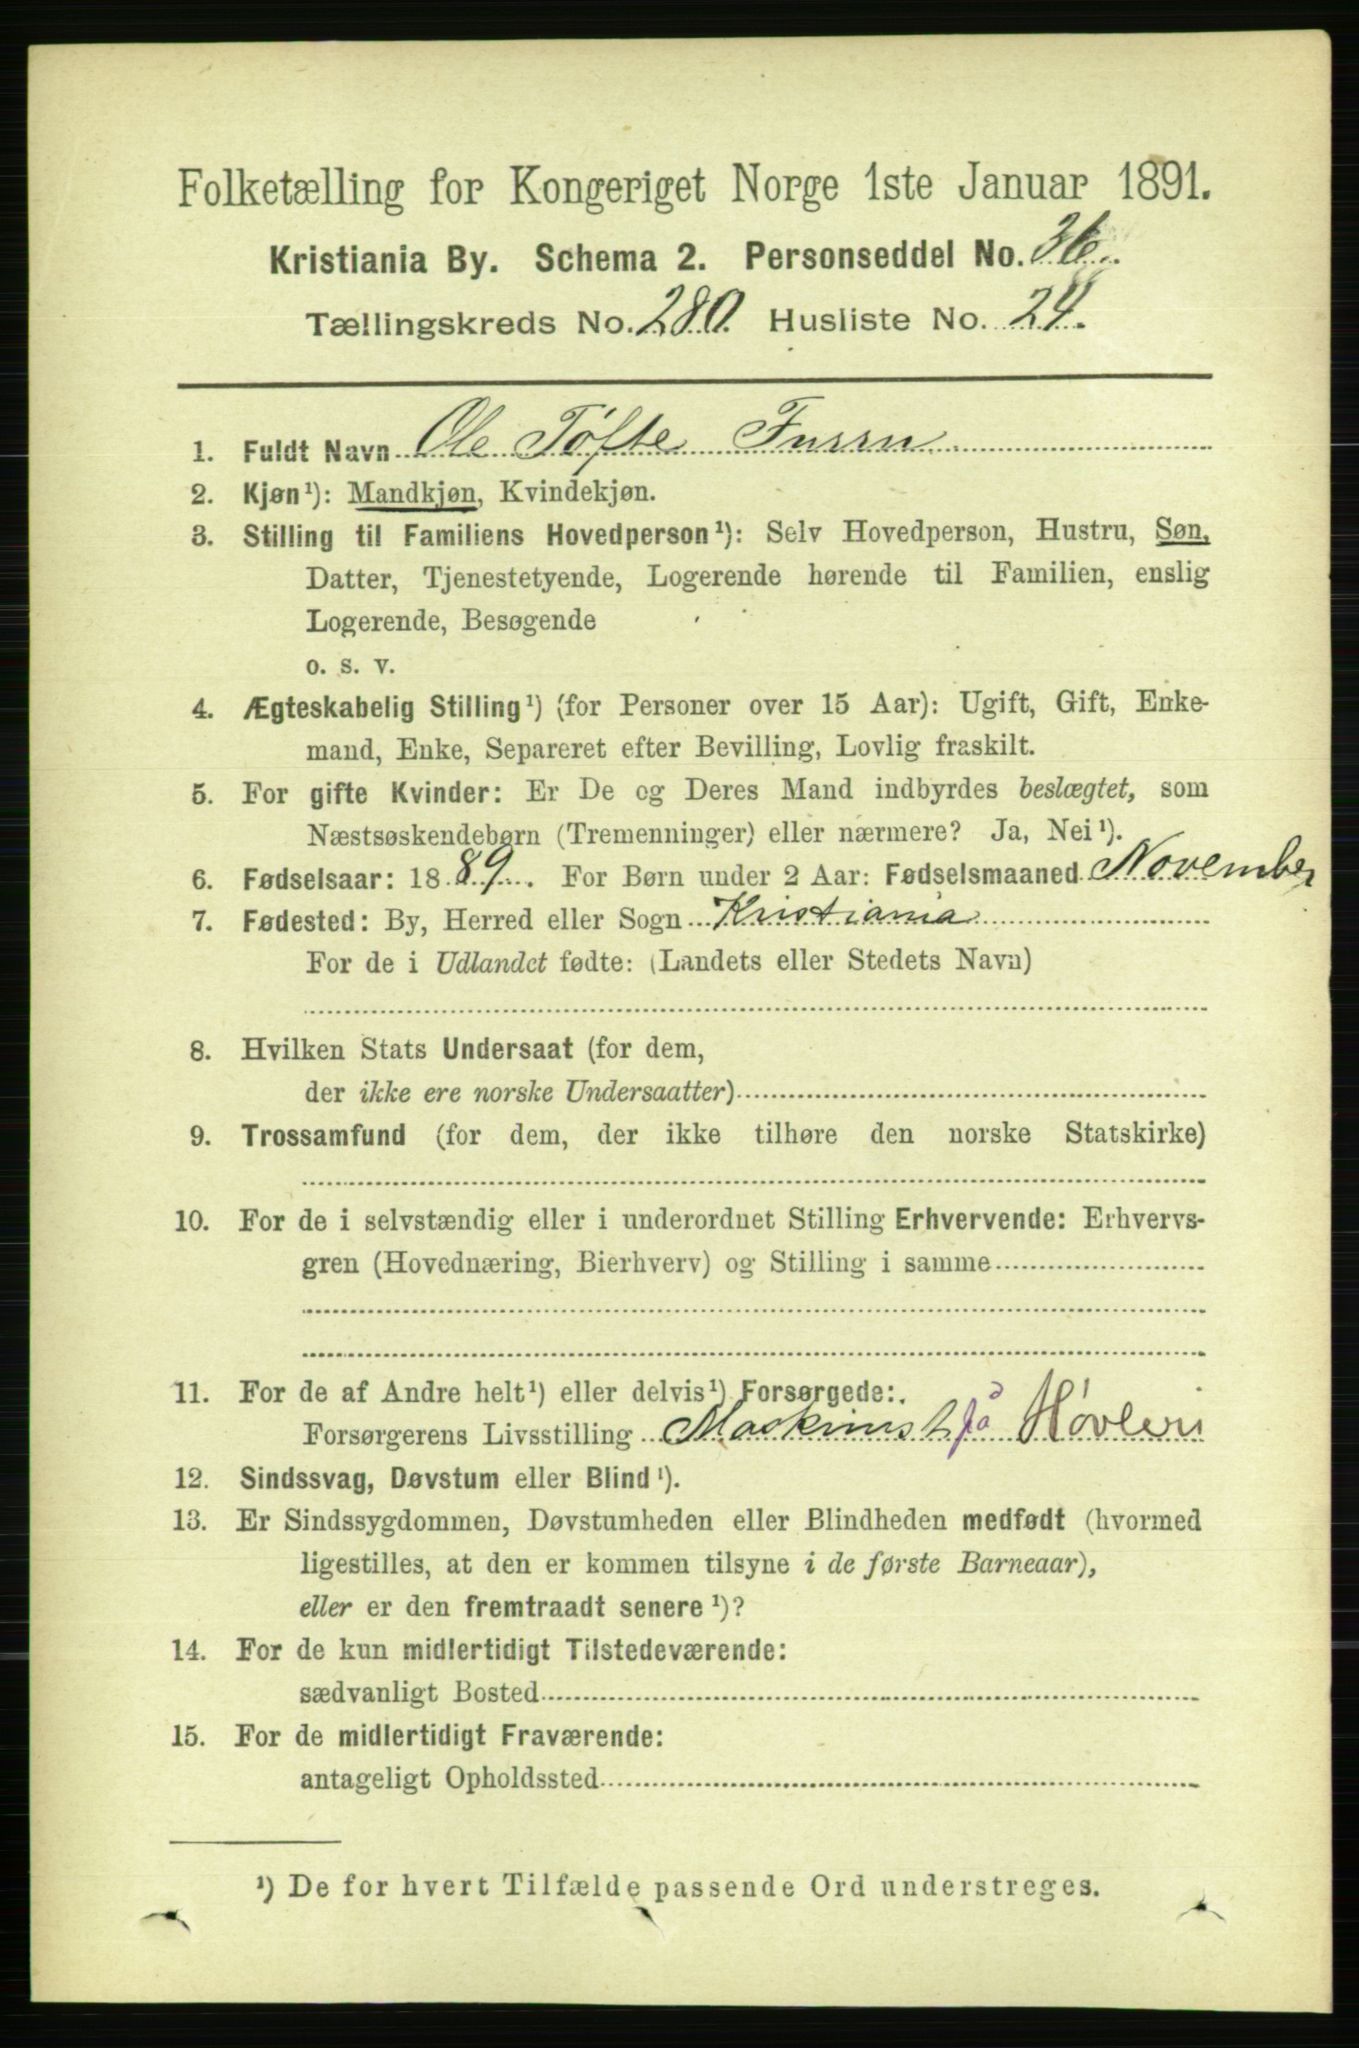 Folketælling for Kongeriget Norge 1ste Januar 1891.
Kristiania By. Schema 2. Personseddel No. 36.
Tællingskreds No. 280. Husliste No. 24.
1. Fuldt Navn Ole Tøfte Furru
2. Kjøn¹): Mandkjøn, Kvindekjøn.
3. Stilling til Familiens Hovedperson¹): Selv Hovedperson, Hustru, Søn,
Datter, Tjenestetyende, Logerende hørende til Familien, enslig
Logerende, Besøgende
o. s. v.
4. Ægteskabelig Stilling¹) (for Personer over 15 Aar): Ugift, Gift, Enke-
mand, Enke, Separeret efter Bevilling, Lovlig fraskilt.
5. For gifte Kvinder: Er De og Deres Mand indbyrdes beslægtet, som
Næstsøskendebørn (Tremenninger) eller nærmere? Ja, Nei¹).
6. Fødselsaar: 1889. For Børn under 2 Aar: Fødselsmaaned November
7. Fødested: By, Herred eller Sogn Kristiania
For de i Udlandet fødte: (Landets eller Stedets Navn)
8. Hvilken Stats Undersaat (for dem,
der ikke ere norske Undersaatter)
9. Trossamfund (for dem, der ikke tilhøre den norske Statskirke)
10. For de i selvstændig eller i underordnet Stilling Erhvervende: Erhvervs-
gren (Hovednæring, Bierhverv) og Stilling i samme
11. For de af Andre helt¹) eller delvis¹) Forsørgede:
Forsørgerens Livsstilling Maskinist på Høvleri
12. Sindssvag, Døvstum eller Blind¹).
13. Er Sindssygdommen, Døvstumheden eller Blindheden medfødt (hvormed
ligestilles, at den er kommen tilsyne i de første Barneaar),
eller er den fremtraadt senere¹)?
14. For de kun midlertidigt Tilstedeværende:
sædvanligt Bosted
15. For de midlertidigt Fraværende:
antageligt Opholdssted
¹) De for hvert Tilfælde passende Ord understreges.